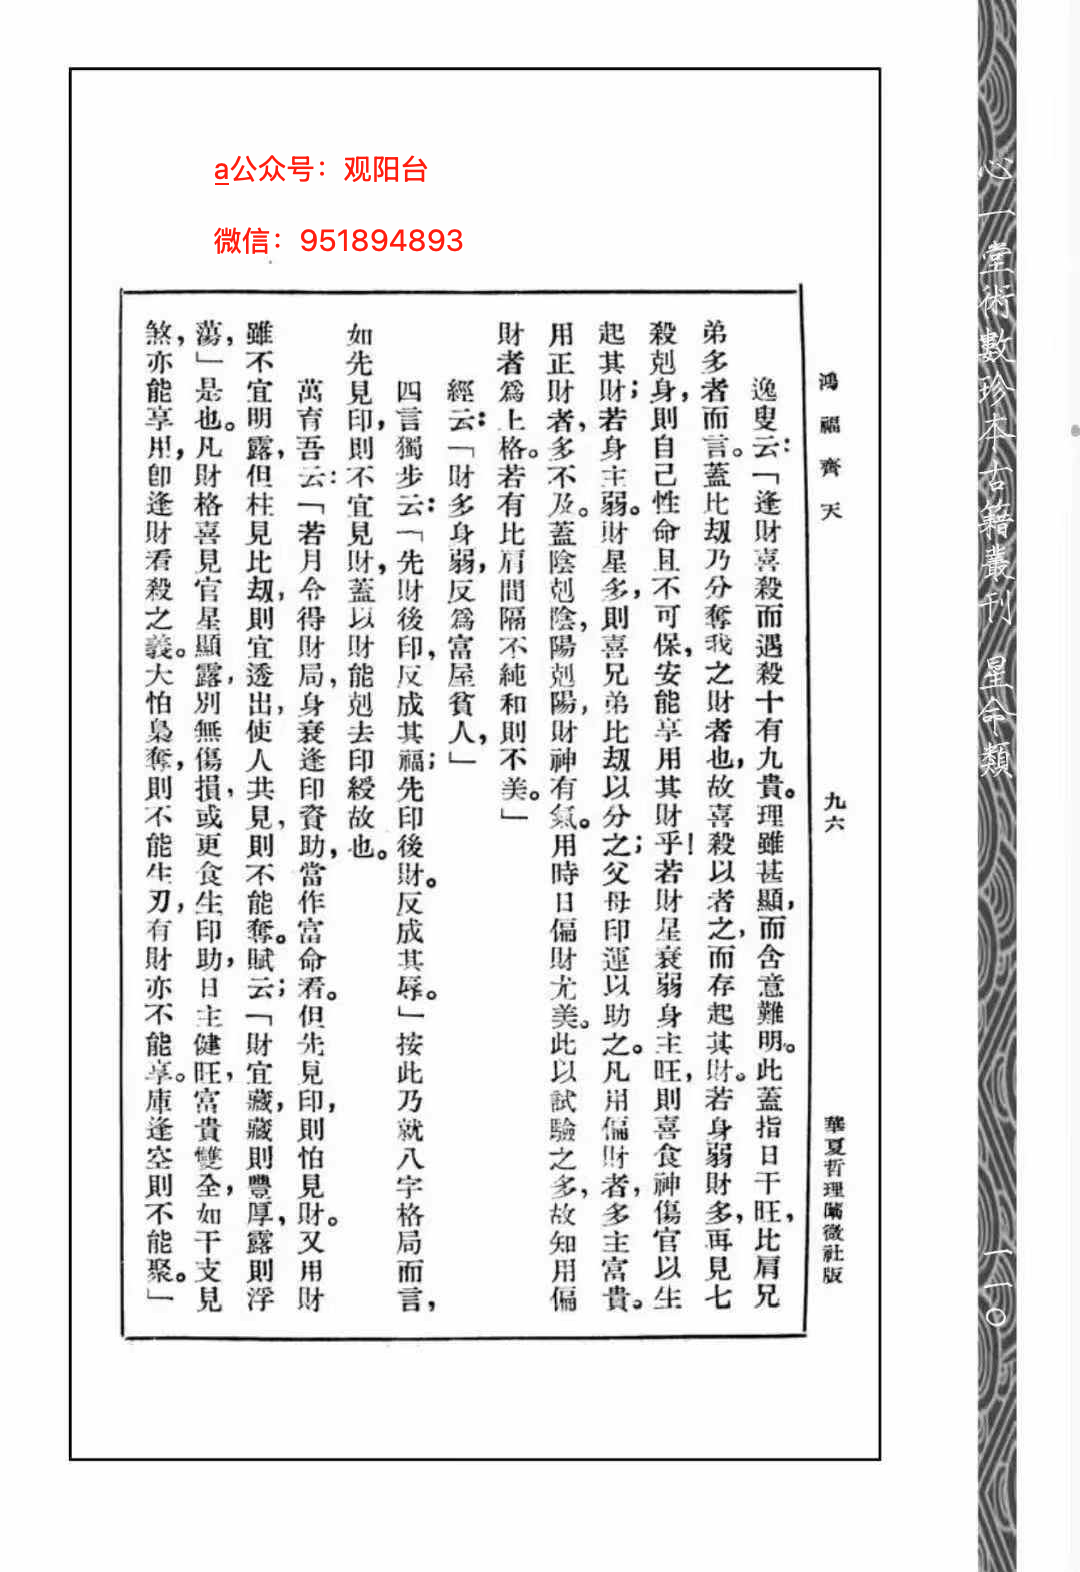 a公众号：观阳台
微信：951894893
心一堂術數珍本古籍叢刊 星命類
一一〇
鴻福齊天
九六
華夏哲理闡微社版
逸叟云：「逢財喜殺而遇殺十有九貴。理雖甚顯，而含意難明。此蓋指日干旺，比肩兄
弟多者而言。蓋比刼乃分奪我之財者也，故喜殺以者之，而存起其財。若身弱財多，再見七
殺剋身，則自己性命且不可保，安能享用其財乎！若財星衰弱身主旺，則喜食神傷官以生
起其財；若身主弱。財星多，則喜兄弟比刼以分之；父母印運以助之。凡用偏財者，多主富貴。
用正財者，多不及。蓋陰剋陰，陽剋陽，財神有氣。用時日偏財尤美。此以試驗之多，故知用偏
財者爲上格。若有比肩間隔不純和則不美。」
經云：「財多身弱，反爲富屋貧人，」
四言獨步云：「先財後印，反成其福；先印後財。反成其辱。」按此乃就八字格局而言，
如先見印，則不宜見財，蓋以財能剋去印綬故也。
萬育吾云：「若月令得財局，身衰逢印資助，當作富命看。但先見印，則怕見財。又用財
雖不宜明露，但柱見比刼，則宜透出，使人共見，則不能奪。賦云；「財宜藏，藏則豐厚，露則浮
蕩，」是也。凡財格喜見官星顯露，別無傷損，或更食生印助，日主健旺，富貴雙全，如干支見
煞，亦能享用，卽逢財看殺之義。大怕梟奪，則不能生刃，有財亦不能享。庫逢空則不能聚。」